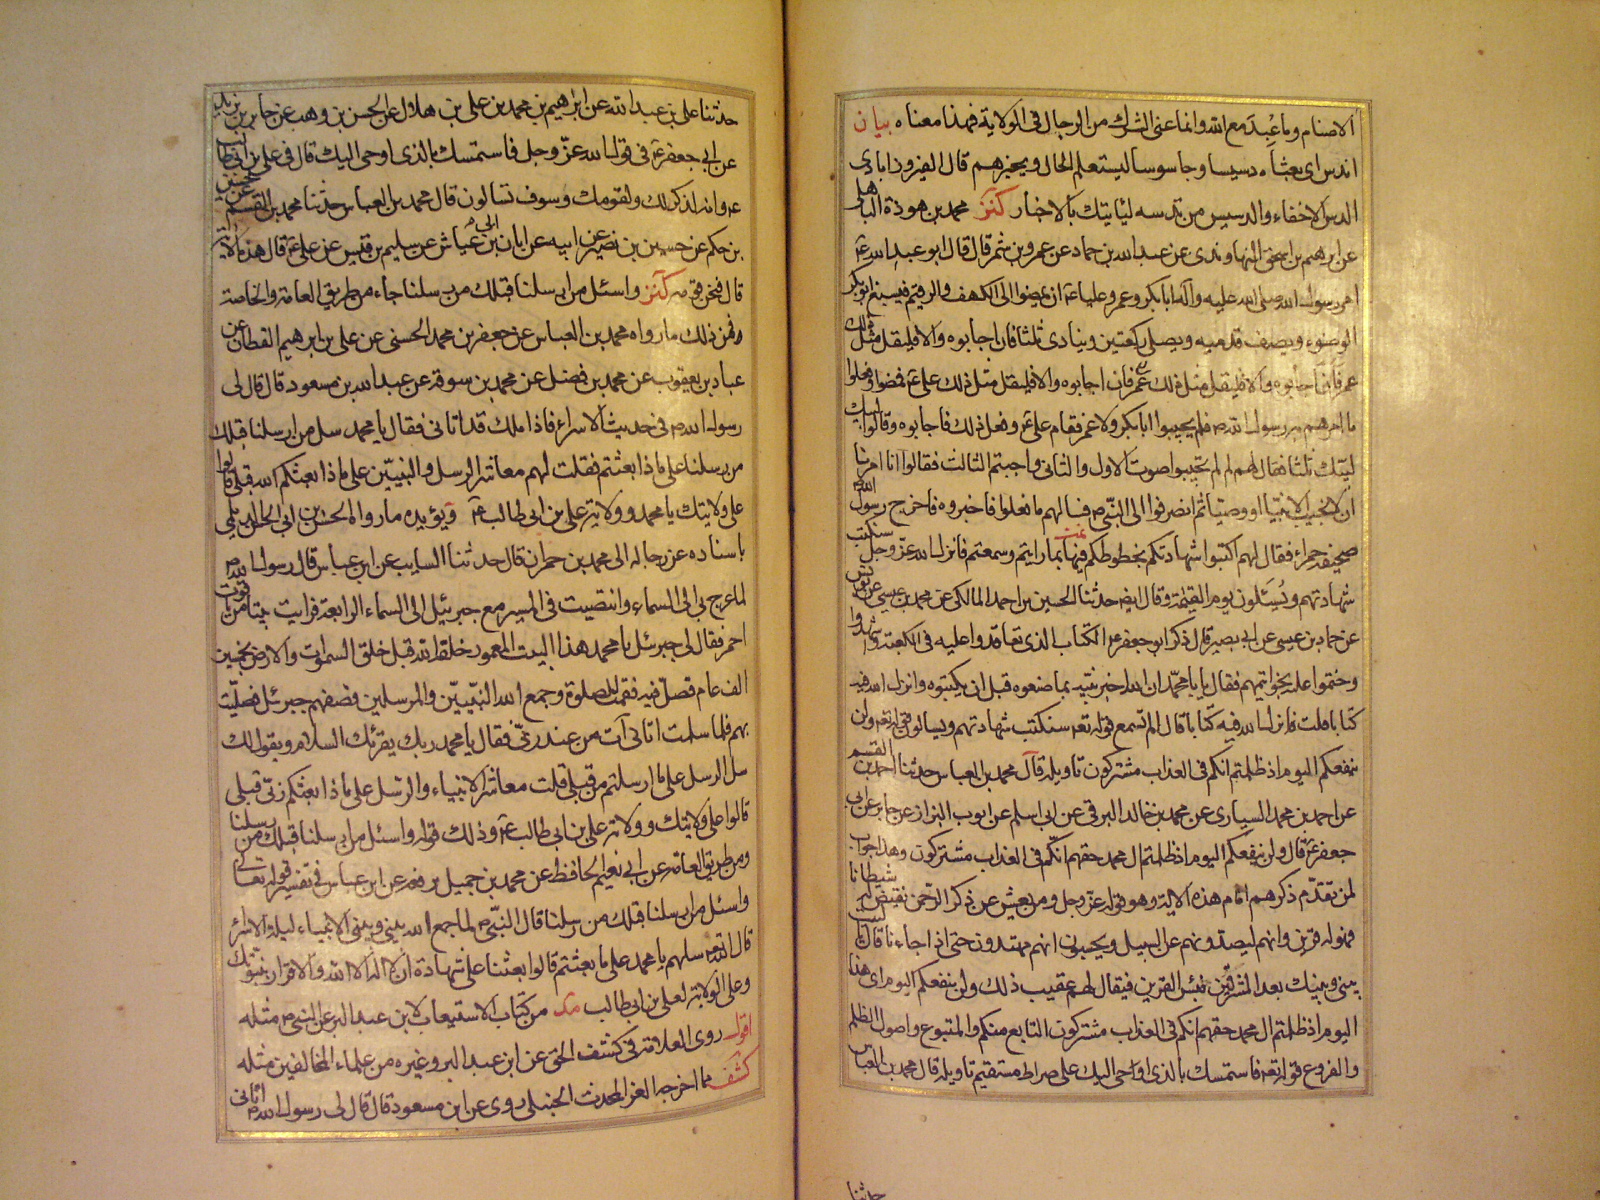 الاصنام وما عبد مع الله وانما عنى الشرك من الرجال فى الولاية فهذا معناه بيان
اندس اى بعثاه دسيسا وجاسوسا ليستعلم الحال ويخبرهم قال الفيروزابادى
الدس الاخفاء والدسيس من تدسه لياتيك بالاخبار كنز محمد بن هوذة الباهلى
عن ابرهيم بن اسحق النهاوندى عن عبد الله بن حماد عن عمرو بن شمر قال قال ابو عبد الله ع
امر رسول الله صلى الله عليه واله ابا بكر وعمر وعليا ع ان يمضوا الى الكهف والرقيم فيسبغ ابو بكر
الوضوء ويصف قدميه ويصلى ركعتين وينادى ثلثا فان اجابوه والا فليقل مثل ذلك
عمر فان اجابوه والا فليقل مثل ذلك على ع فمضوا وفعلوا
ما امرهم به رسول الله ص فلم يجيبوا ابا بكر ولا عمر فقام على ع وفعل ذلك فاجابوه وقالوا لبيك
لبيك ثلثا فقال لهم لم لم تجيبوا صوت الاول والثانى واجبتم الثالث فقالوا انا امرنا
ان لا نجيب الا نبيا او وصيا ثم انصرفوا الى النبى ص فسالهم ما فعلوا فاخبروه فاخرج رسول الله ص
صحيفة حمراء فقال لهم اكتبوا شهادتكم بخطوطكم فيها بما رايتم وسمعتم فانزل الله عز وجل ستكتب
شهادتهم ويسئلون يوم القيمة وقال ايضا حدثنا الحسين بن احمد المالكى عن محمد بن عيسى عن يونس
عن حماد بن عيسى عن ابى بصير قال ذكر ابو جعفر ع الكتاب الذى تعاقدوا عليه فى الكعبة واشهدوا
وختموا عليه بخواتيمهم فقال يا با محمد ان الله اخبر نبيه بما صنعوه قبل ان يكتبوه وانزل الله فيه
كتابا قلت فانزل الله فيه كتابا قال الم تسمع قوله تعالى ستكتب شهادتهم ويسالون قوله تعالى ولن
ينفعكم اليوم اذ ظلمتم انكم فى العذاب مشتركون تاويله قال محمد بن العباس حدثنا احمد بن القسم
عن احمد بن محمد السيارى عن محمد بن خالد البرقى عن ابى اسلم عن ايوب البزاز عن جابر عن ابى
جعفر ع قال ولن ينفعكم اليوم اذ ظلمتم ال محمد حقهم انكم فى العذاب مشتركون وهذا جواب
لمن تقدم ذكرهم امام هذه الاية وهو قوله عز وجل ومن يعش عن ذكر الرحمن نقيض له شيطانا
فهو له قرين وانهم ليصدونهم عن السبيل ويحسبون انهم مهتدون حتى اذا جاءنا قال يا ليت
بينى وبينك بعد المشرقين فبئس القرين فيقال لهم عقيب ذلك ولن ينفعكم اليوم اى هذا
اليوم اذ ظلمتم ال محمد حقهم انكم فى العذاب مشتركون التابع منكم والمتبوع واصول الظلم
والفروع قوله تعالى فاستمسك بالذى اوحى اليك على صراط مستقيم تاويله قال محمد بن العباس
حدثنا
حدثنا على بن عبد الله عن ابراهيم بن محمد بن على بن هلال عن الحسن بن وهب عن جابر بن يزيد
عن ابى جعفر ع فى قول الله عز وجل فاستمسك بالذى اوحى اليك قال فى على بن ابى طالب
ع وانه لذكر لك ولقومك وسوف تسالون قال محمد بن العباس حدثنا محمد بن القسم عن حسين
بن حكم عن حسين بن نصير عن ابيه عن ابان بن ابى عياش عن سليم بن قيس عن على ع قال هذه الاية
قال فنحن قومه كنز واسئل من ارسلنا قبلك من رسلنا جاء من طريق العامة والخاصة
فمن ذلك ما رواه محمد بن العباس عن جعفر بن محمد الحسنى عن على بن ابرهيم القطان عن
عباد بن يعقوب عن محمد بن فضل عن محمد بن سوقة عن عبد الله بن مسعود قال قال لى
رسول الله ص فى حديث الاسراء فاذا ملك قد اتانى فقال يا محمد سل من ارسلنا قبلك
من رسلنا على ما ذا بعثتم فقلت لهم معاشر الرسل والنبيين على ما ذا بعثكم الله قبلى قالوا
على ولايتك يا محمد وولاية على بن ابى طالب ع ويؤيده ما رواه الحسن بن ابى الحسن الديلمى
باسناده عن رجاله الى محمد بن حمران قال حدثنا السايب عن ابن عباس قال رسول الله ص
لما عرج بى الى السماء وانتهيت فى المسير مع جبرئيل الى السماء الرابعة فرايت بيتا من ياقوت
احمر فقال لى جبرئل يا محمد هذا البيت المعمور خلقه الله قبل خلق السموات والارض بخمسين
الف عام فصل فيه فقمت للصلوة وجمع الله النبيين والمرسلين فصفهم جبرئل فصليت
بهم فلما سلمت اتانى آت من عند ربى فقال يا محمد ربك يقرئك السلام ويقول لك
سل الرسل على ما ارسلتم من قبلى قلت معاشر الانبياء والرسل على ما ذا بعثكم ربى قبلى
قالوا على ولايتك وولاية على بن ابى طالب ع وذلك قوله واسئل من ارسلنا قبلك من رسلنا
ومن طريق العامة عن ابى نعيم الحافظ عن محمد بن جميل يرفعه عن ابن عباس فى تفسير قوله تعالى
واسئل من ارسلنا قبلك من رسلنا قال النبى ص لما جمع الله بينى وبين الانبياء ليلة الاسراء
قال الله تعالى سلهم يا محمد على ما بعثتم قالوا بعثنا على شهادة ان لا اله الا الله والاقرار بنبوتك
وعلى الولاية لعلى بن ابى طالب مد من كتاب الاستيعاب لابن عبد البر عن النبى ص مثله
اقول روى العلامة فى كشف الحق عن ابن عبد البر وغيره من علماء المخالفين مثله
كشف مما اخرجه العز المحدث الحنبلى روى عن ابن مسعود قال قال لى رسول الله ص اتانى